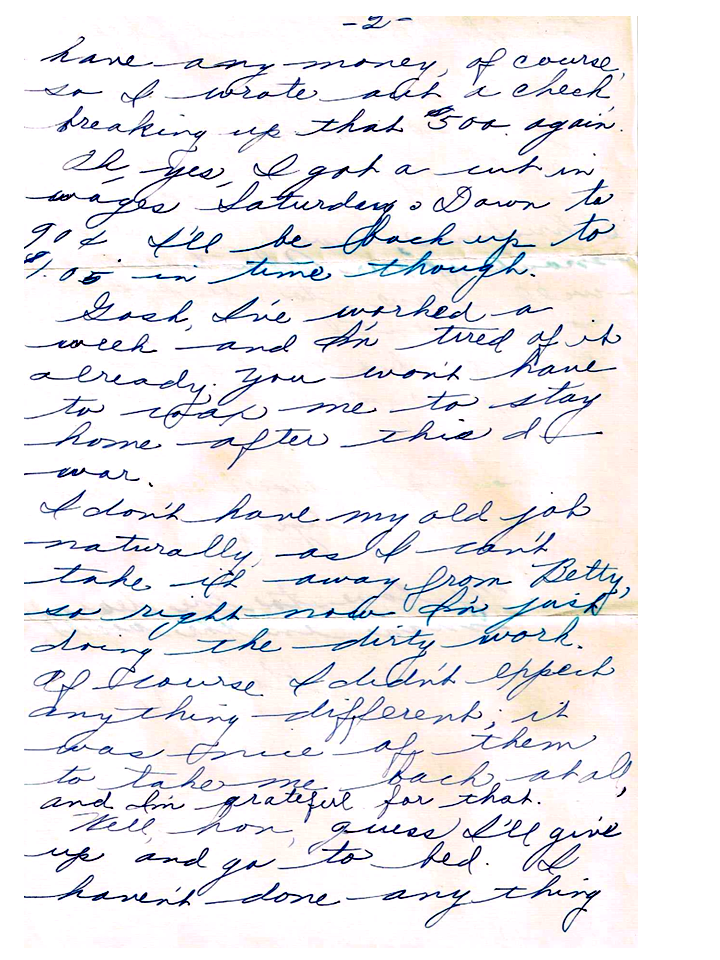 -2-
have any money, of course,
so I wrote out a check,
breaking up that $500 again.
Oh, yes, I got a cut in
wages Saturday. Down to
90¢ I'll be back up to
$1.05 in time though.
Gosh, I've worked a
week and I'm tired of it
already. You won't have
to coax me to stay
home after this d—
war.
I don't have my old job
naturally, as I can't
take it away from Betty,
so right now I'm just
doing the dirty work.
Of course I didn't expect
anything different; it
was nice of them
to take me back at all,
and I'm grateful for that.
Well, hon, guess I'll give
up and go to bed. I
haven't done any thing